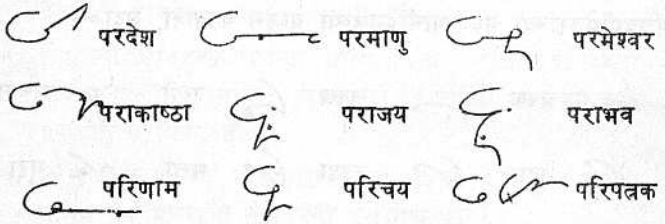 परदेश परमाणु परमेश्वर
पराकाष्ठा पराजय पराभव
परिणाम परिचय परिपत्रक